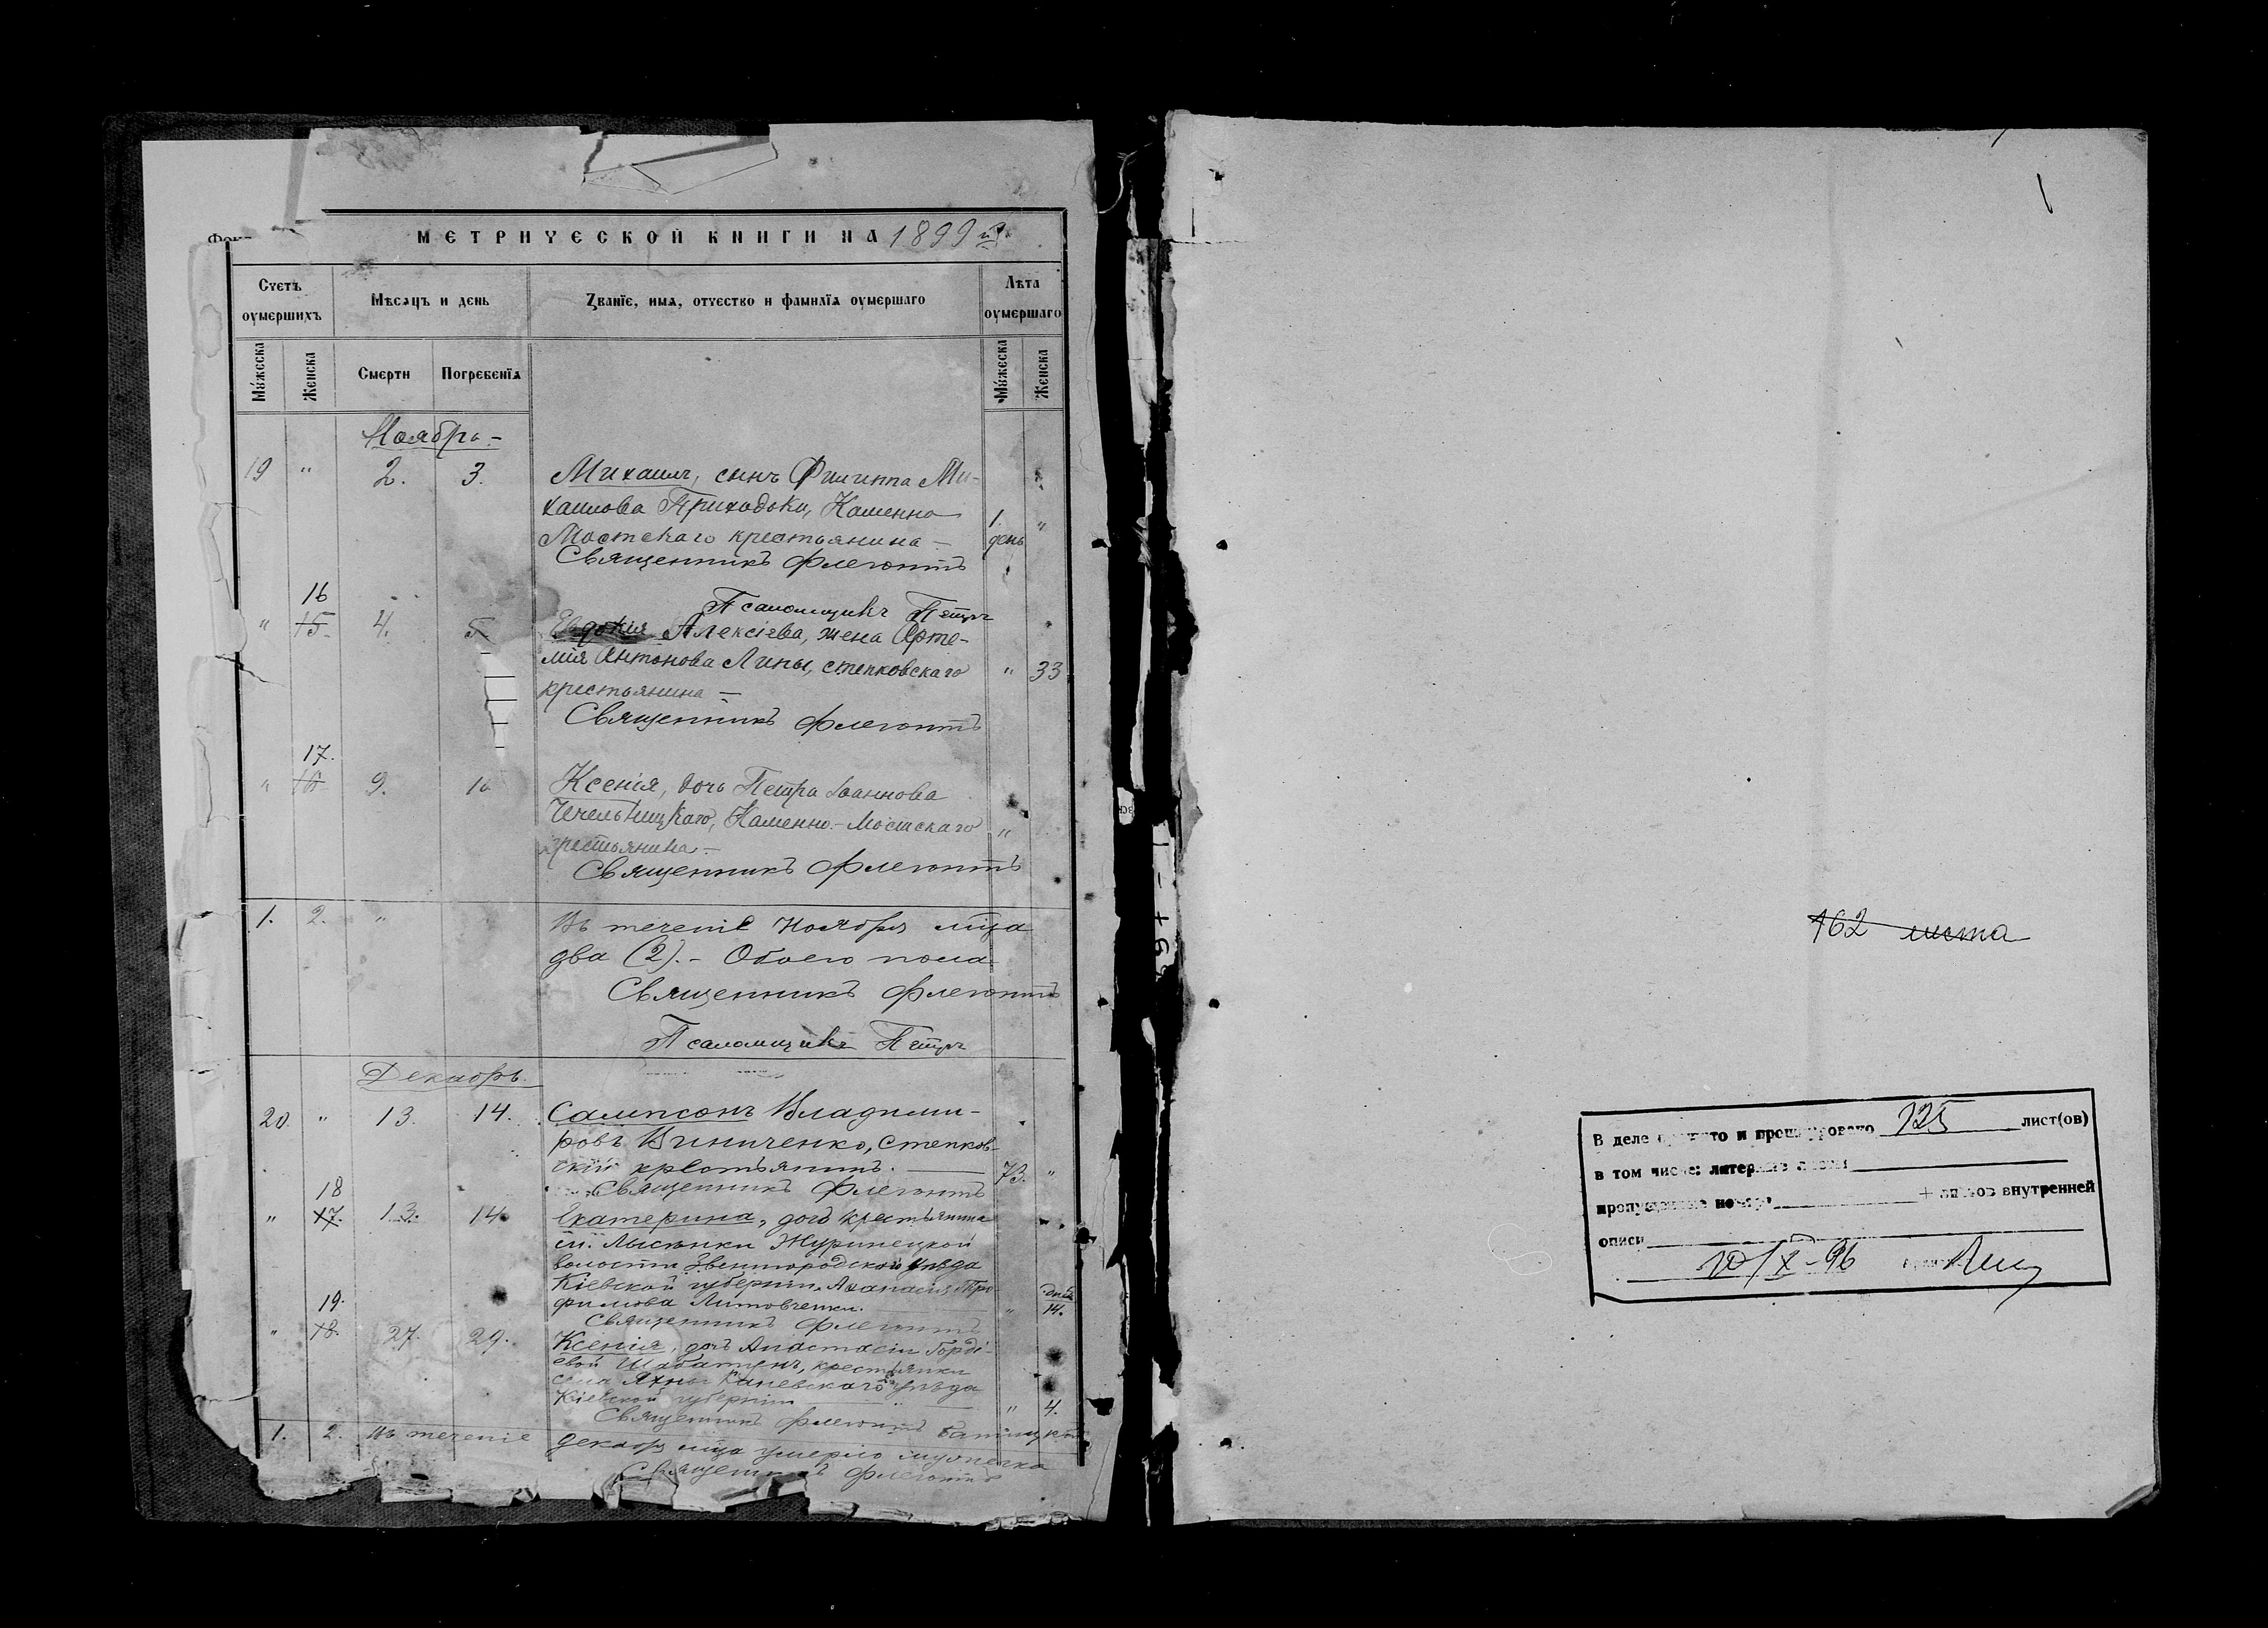 МЕТРИЧЕСКОЙ КНИГИ НА 1899 й г.
Счетъ оумершихъ
Мѣсяцъ и день
Званїе, имя, отчество и фамилїя оумершаго
Лѣта оумершаго
Мꙋжеска
Женска
Смерти
Погребенїя
Мꙋжеска
Женска
Ноябрь -
19 " 2. 3. Михаилъ, сынъ Филиппа Ми-
хаилова Приходьки, Каменно
Мостскаго крестьянина - 1. день "
Священникъ Флегонтъ
Псаломщикъ Петръ
16
" 15. 4. 5. Евдокія Алексіева, жена Арте-
мія Антонова Липы, степковскаго " 33
крестьянина -
Священникъ Флегонтъ
17.
" 16 9. 10 Ксенія, дочь Петра Іоаннова
Чечельницкаго, Каменно-Мостскаго "
крестьянина -
Священникъ Флегонтъ
1. 2. " " Въ теченіе Ноября мца
два (2). - Обоего пола
Священникъ Флегонтъ
Псаломщикъ Петръ
Декабрь.
20. " 13. 14. Сампсонъ Владими-
ровъ Винниченко, степков-
скій крестьянинъ. 73. "
Священникъ Флегонтъ
18
" 17. 13. 14 Екатерина, дочь крестьянина
с. Лысянки Журинецкой
волости Звенигородскаго уѣзда
Кіевской губерніи Аѳанасія Тро-
фимова Литовченки. " дней 14.
Священникъ Флегонтъ
19.
" 18. 27. 29. Ксенія, дочь Анастасіи Горді-
евой Шабатунъ, крестьянки
села Яхны Каневскаго уѣзда
Кіевской губерніи " 4.
Священникъ Флегонтъ
1. 2. Въ теченіе декабря мца умерло мужеска
Священникъ Флегонтъ
162 листа
В деле и прошнуровано 125 лист(ов)
в том числе: литерные листы
пропущенные номера + листов внутренней
описи
10/X-96